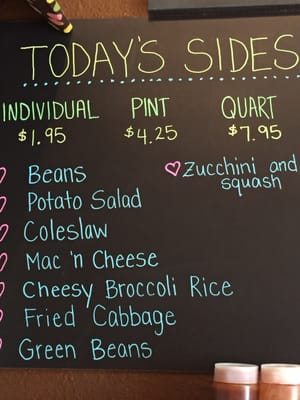 TODAY'S SIDES
INDIVIDUAL PINT QUART
$1.95 $4.25 $7.95
Beans
Potato Salad
Coleslaw
Mac 'n Cheese
Cheesy Broccoli Rice
Fried Cabbage
Green Beans
Zucchini and
squash